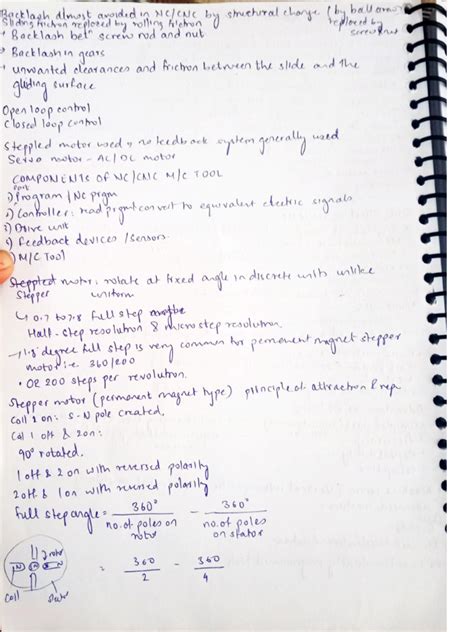 Backlash almost avoided in NC/CNC by structural change (by ball
Sliding friction replaced by rolling friction replaced by
Backlash bet" screw rod and nut screw & nut
Backlash in gears
unwanted clearances and friction between the slide and the
gliding surface
Open loop control
Closed loop control
Steppled motor used & no feedback system generally used
Servo motor - AC/DC motor
COMPONENTS OF NC/CNC M/C TOOL
1) Program / NC prgm
2) Controller: read prgm & convert to equivalent electric signals
3) Drive unit
4) Feedback devices / sensors
5) M/C TOOL
Steppled motor: rotate at fixed angle in discrete units unlike
Stepper uniform
↳ 0.7 to 7.8 full step maybe
Half-step resolution & microstep resolution
→ 1.8 degree full step is very common for permanent magnet stepper
motor i.e. 360/200
• OR 200 steps per revolution.
Stepper motor (permanent magnet type) principle of attraction & rep
Coil 2 on: S-N pole created,
Coil 1 off & 2 on:
90° rotated.
1 off & 2 on with reversed polarity
2 off & 1 on with reversed polarity
Full step angle = 360° / no. of poles on rotor - 360° / no. of poles on stator
rotor
N S N = 360/2 - 360/4
Coil stator